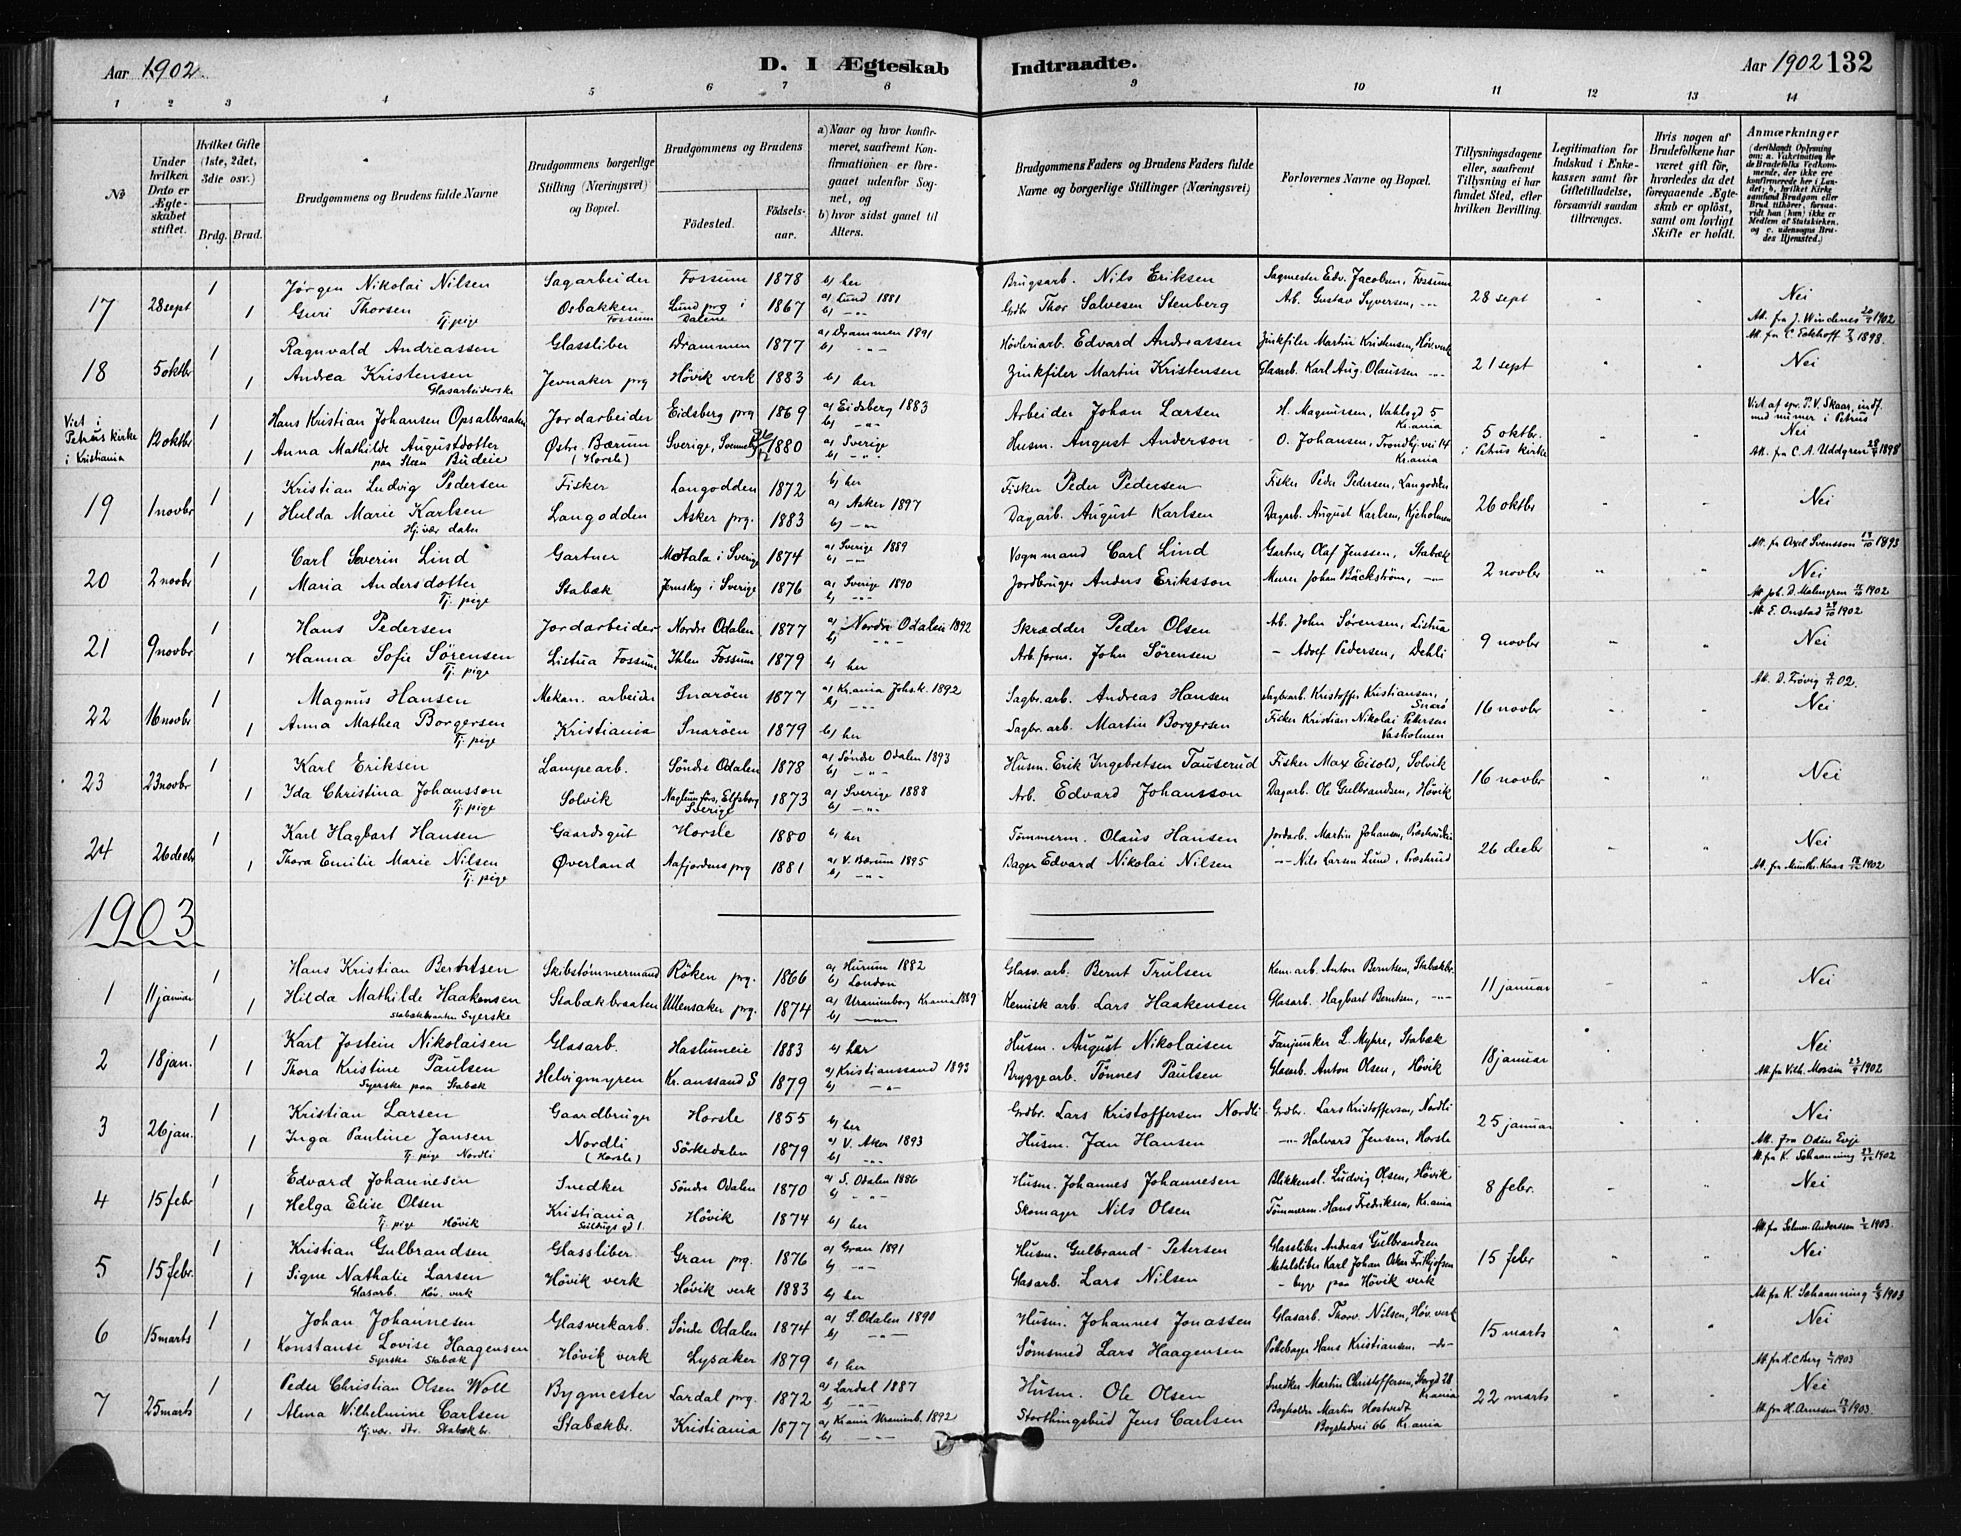 Aar 1902.
D. I Ægteskab
Indtraadte.
Aar 1902 132
1 2 3 4 5 6 7 8 9 10 11 12 13 14
No
Under hvilken Dato er Ægteskabet stiftet.
Hvilket Gifte (1ste, 2det, 3die osv.)
Brdg. Brud.
Brudgommens og Brudens fulde Navne
Brudgommens borgerlige Stilling (Næringsvei) og Bopæl.
Brudgommens og Brudens
Födested.
Födselsaar.
a) Naar og hvor konfirmeret, saafremt Konfirmationen er foregaaet udenfor Sognet, og
b) hvor sidst gaaet til Alters.
Brudgommens Faders og Brudens Faders fulde Navne og borgerlige Stillinger (Næringsvei)
Forlovernes Navne og Bopæl.
Tillysningsdagene eller, saafremt Tillysning ei har fundet Sted, efter hvilken Bevilling.
Legitimation for Indskud i Enkekassen samt for Giftetilladelse, forsaavidt saadan tiltrænges.
Hvis nogen af Brudefolkene har været gift för, hvorledes da det foregaaende Ægteskab er oplöst, samt om lovligt Skifte er holdt.
Anmærkninger
17 28 sept 1 Jørgen Nikolai Nilsen Sagarbeider Fossum 1878 b) her Brugsarb. Nils Eriksen Sagmester Edv. Jacobsen, Fossum 28 sept Nei
1 Guri Thorsen Tj. pige Osbakken Fossum Lund prg i Dalene 1867 a) Lund 1881 b) -"- Grdbr Thor Salvesen Stenberg Arb. Gustav Syversen, -"-
18 5 oktbr 1 Ragnvald Andreassen Glassliber Drammen 1877 a) Drammen 1891 b) -"- Høvleriarb. Edvard Andreassen Zinkfiler Martin Kristensen, Høv. verk 21 sept Att. fra C. Eckhoff 1898. Nei
1 Andrea Kristensen Glasarbeiderske Jevnaker prg Høvik verk 1883 b) her Zinkfiler Martin Kristensen Glasarb. Karl Aug. Olaussen -"-
Viet i Petrus kirke i Kristiania 12 oktbr 1 Hans Kristian Johansen Opsalbraaten Jordarbeider Eidsberg prg 1869 a) Eidsberg 1883 b) -"- Arbeider Johan Larsen H. Magnussen, Vahlsgd 5 Kr.ania 5 oktbr. i Petrus kirke Nei
1 Anna Mathilde Augustdotter paa Steen Budeie Østre Bærum (Horsle) Sverige, 1880 a) Sverige b) -"- Husm. August Anderson O. Johansen, Trondhj. vei 14 Kr.ania Att. fra C. A. Uddgren 1898
19 1 novbr 1 Kristian Ludvig Pedersen Fisker Langodden 1872 b) her Fisker Peder Pedersen Fisker Peder Pedersen, Langodden 26 oktbr Nei
1 Hulda Marie Karlsen Hj. vær. datn Langodden Asker prg. 1883 a) Asker 1897 b) -"- Dagarb. August Karlsen Dagarb. August Karlsen, Kjeholmen
20 2 novbr 1 Carl Severin Lind Gartner Motala i Sverige 1874 a) Sverige 1889 b) -"- Vognmand Carl Lind Gartner Olaf Jenssen, Stabæk 2 novbr Att. fra Axel Svensson 1893 Nei
1 Maria Andersdotter Tj. pige Stabæk Jernskog i Sverige 1876 a) Sverige 1890 b) -"- Jordbruger Anders Eriksson Murer Johan Bäckström, -"- Att. Joh. D. Malmgren 1902
21 9 novbr 1 Hans Pedersen Jordarbeider Nordre Odalen 1877 a) Nordre Odalen 1892 b) -"- Skrædder Peder Olsen Arb. John Sørensen, Listua 9 novbr Att. E. Onstad 1902 Nei
1 Hanna Sofie Sørensen Tj. pige Listua Fossum Ihlen Fossum 1879 b) her Arb. form. John Sørensen - Adolf Pedersen, Dehli
22 16 novbr 1 Magnus Hansen Mekan. arbeider Snarøen 1877 a) Kr.ania Johs.k. 1892 b) -"- Sagbr.arb. Andreas Hansen Sagbr.arb. Kristoffer Kristiansen, Snarø 16 novbr Nei
1 Anna Mathea Borgersen Tj. pige Kristiania Snarøen 1879 b) her Sagbr.arb. Martin Borgersen Fisker Kristian Nikolai Petersen Vasholmen
23 23 novbr 1 Karl Eriksen Lampearb. Søndre Odalen 1878 a) Søndre Odalen 1893 b) -"- Husm. Erik Ingebretsen Tauserud Fisker Max Eisold, Solvik 16 novbr Nei
1 Ida Christina Johansson Tj. pige Solvik Naglum förs. Elfsborg Sverige 1873 a) Sverige 1888 b) -"- Arb. Edvard Johansson Dagarb. Ole Gulbrandsen, Høvik
24 26 decbr 1 Karl Hagbart Hansen Gaardsgut Horsle 1880 b) her Tømmerm. Olaus Hansen Jordarb. Martin Johansen, 26 decbr Nei
1 Thora Emilie Marie Nilsen Tj. pige Øverland Aafjordens prg 1881 a) V. Bærum 1895 b) -"- Bager Edvard Nikolai Nilsen -"- Nils Larsen Lund, Præsterud Att. fra Munthe-Kaas 1902
1903
1 11 januar 1 Hans Kristian Berntsen Skibstømmermand Røken prg. 1866 a) Hurum 1882 b) London Glasv.arb. Bernt Trulsen Kem. arb. Anton Berntsen, Stabækbr. 11 januar Nei
1 Hilda Mathilde Haakensen Stabækbraaten Syerske Stabækbraaten Ullensaker prg. 1874 a) Uranienborg Kr.ania 1889 b) -"- Kemisk arb. Lars Haakensen Glasarb. Hagbart Berntsen, -"-
2 18 jan. 1 Karl Jostein Nikolaisen Glasarb. Haslumeie 1883 b) her Husm. August Nikolaisen Fanjunker L. Myhre, Stabæk 18 januar Nei
1 Thora Kristine Paulsen Syerske paa Stabæk Helvigmyren Kr.anssand S 1879 a) Kristianssand 1893 b) -"- Bryggearb. Tønnes Paulsen Glasarb. Anton Olsen, Høvik Att. fra Vilh. Morsin 1902
3 26 jan. 1 Kristian Larsen Gaardbruger Horsle 1855 b) her Grdbr. Lars Kristoffersen Nordli Grdbr. Lars Kristoffersen, Nordli 25 januar Nei
1 Inga Pauline Jansen Tj. pige Nordli Nordli (Horsle) Sørkedalen 1879 a) V. Aker 1893 b) -"- Husm. Jan Hansen -"- Halvard Jensen, Horsle Att. fra Odin Evje
4 15 febr 1 Edvard Johannesen Snedker Søndre Odalen 1870 a) S. Odalen 1886 b) -"- Husm. Johannes Johannesen Blikkensl. Ludvig Olsen, Høvik 8 febr. Att. fra K. Schanning 1902 Nei
1 Helga Elise Olsen Tj. pige Høvik Kristiania Seildugsgd 1. Høvik 1874 b) her Skomager Nils Olsen Tømmerm. Hans Fredriksen, Kr.ania
5 15 febr. 1 Kristian Gulbrandsen Glassliber. Gran prg. 1876 a) Gran 1891 b) -"- Husm. Gulbrand Petersen Glassliber Andreas Gulbrandsen 15 febr Att. fra Selmer-Anderssen 1903. Nei
1 Signe Nathalie Larsen Glasarb. Høv. verk Høvik verk Høvik verk 1883 b) her Glasarb. Lars Nilsen Metalsliber Karl Johan Oskar Frithjofsen - begge paa Høvik verk
6 15 marts 1 Johan Johannesen Glasverkarb. Søndre Odalen 1874 a) S. Odalen 1890 b) -"- Husm. Johannes Jonassen Glasarb. Thorv. Nilsen, Høv. verk 15 marts Att. fra K. Schanning 1903 Nei
1 Konstanse Lovise Haagensen Syerske Stabæk Høvik verk Lysaker 1879 b) her Sømsmed Lars Haagensen Potebager Hans Kristiansen, -do-
7 25 marts 1 Peder Christian Olsen Woll Bygmester Lardal prg. 1872 a) Lardal 1887 b) -"- Husm. Ole Olsen Snedker Martin Christoffersen, Storgd 28 Kr.ania 22 marts Att. fra H.C. Berg 1903 Nei
1 Alma Wilhelmine Carlsen Hj. vær. dtr. Stabækbr. Stabækbr. Kristiania 1877 a) Kr.ania Uranienb. 1892 b) -"- Storthingsbud Jens Carlsen Bogholder Martin Hostvedt Bogstadvei 66 Kr.ania Att. fra H. Arnesen 1903.